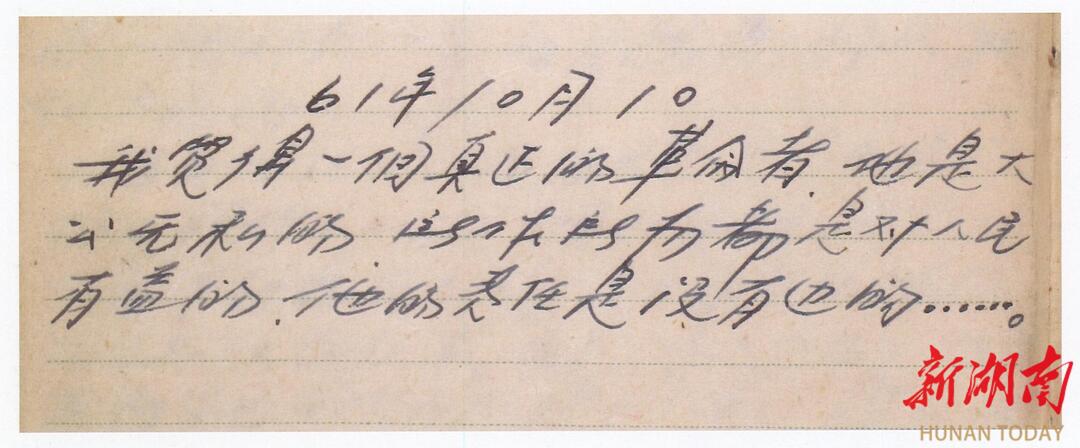 61年10月10
我觉得一個真正的革命者.他是大
公无私的.所作所为都是对人民
有益的.他的责任是没有边的……。
新湖南
HUNAN TODAY